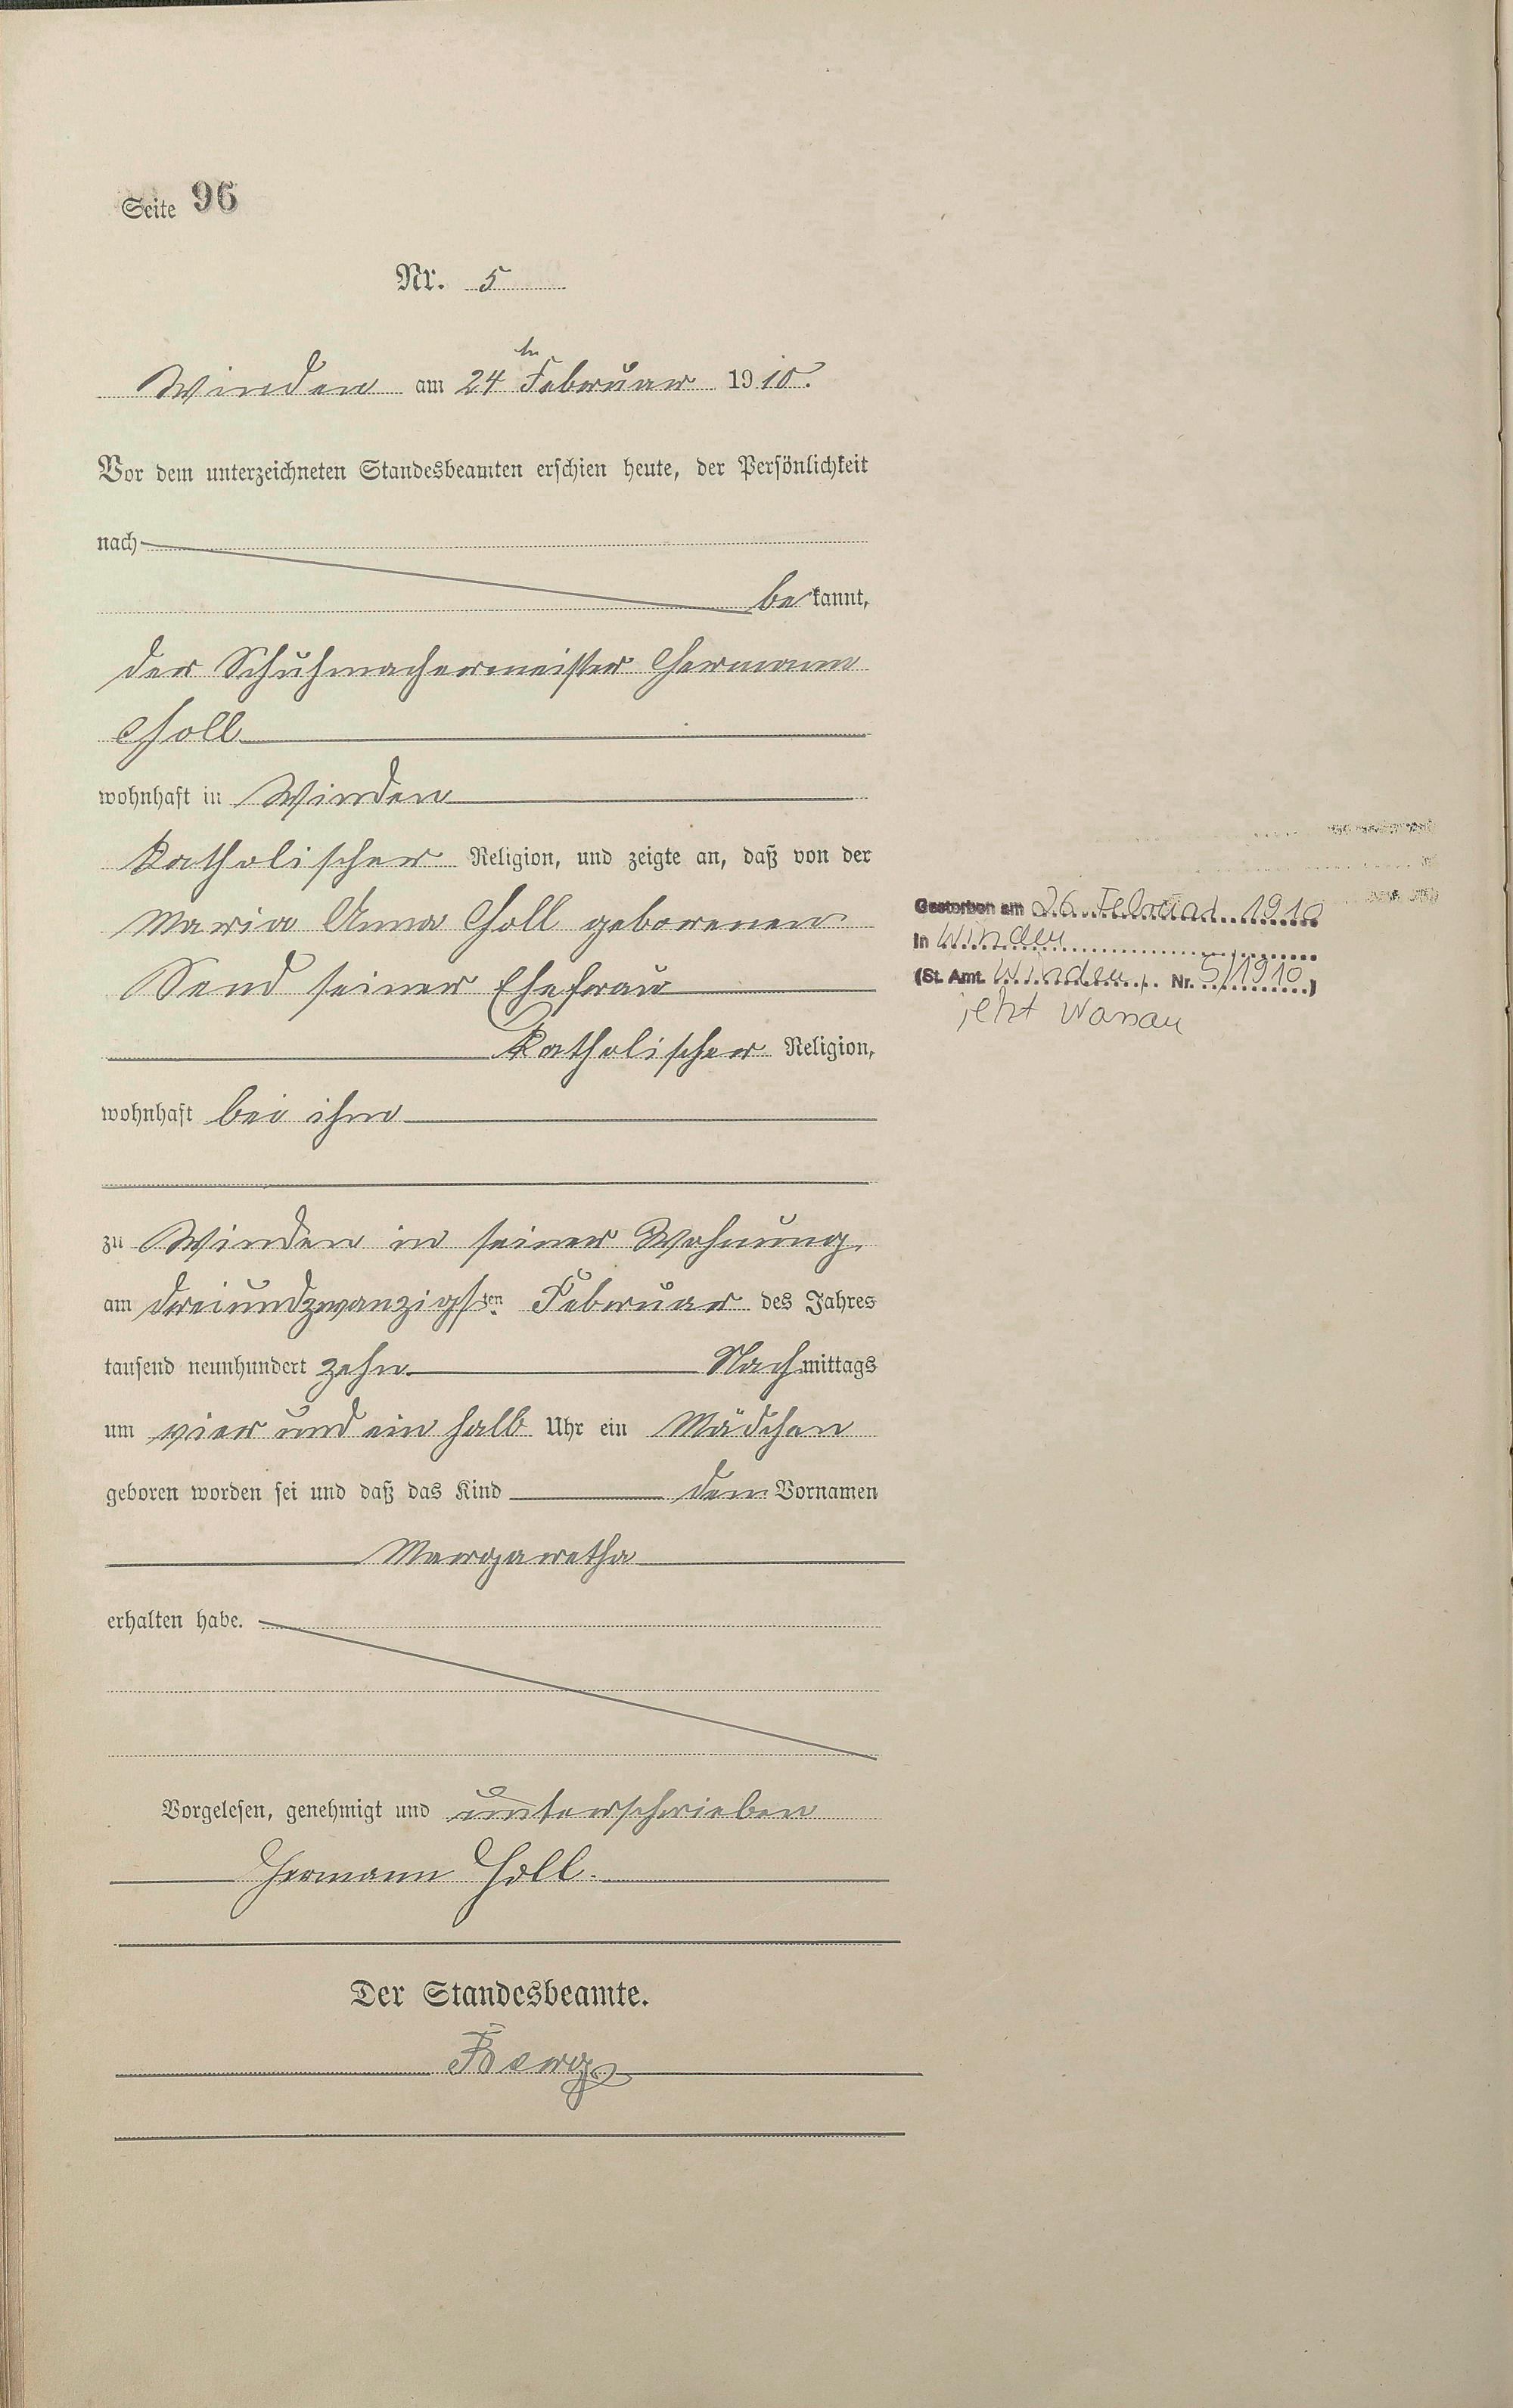 Seite 96
Nr. 5
Winden am 24ten Februar 1910.
Vor dem unterzeichneten Standesbeamten erschien heute, der Persönlichkeit
nach
be kannt,
der Schuhmachermeister Hermann
Holl
wohnhaft in Winden
Katholischer Religion, und zeigte an, daß von der
Maria Anna Holl geborenen
Send seiner Ehefrau
Katholischer Religion,
wohnhaft bei ihm
zu Winden in seiner Wohnung,
am dreiundzwanzigsten Februar des Jahres
tausend neunhundert zehn Nachmittags
um vier und ein halb Uhr ein Mädchen
geboren worden sei und daß das Kind den Vornamen
Margaretha
erhalten habe.
Vorgelesen, genehmigt und unterschrieben
Hermann Holl.
Der Standesbeamte.
Berg
Gestorben am 26. Februar 1910
in Winden
(St. Amt. Winden Nr. 5/1910)
jetzt Nassau